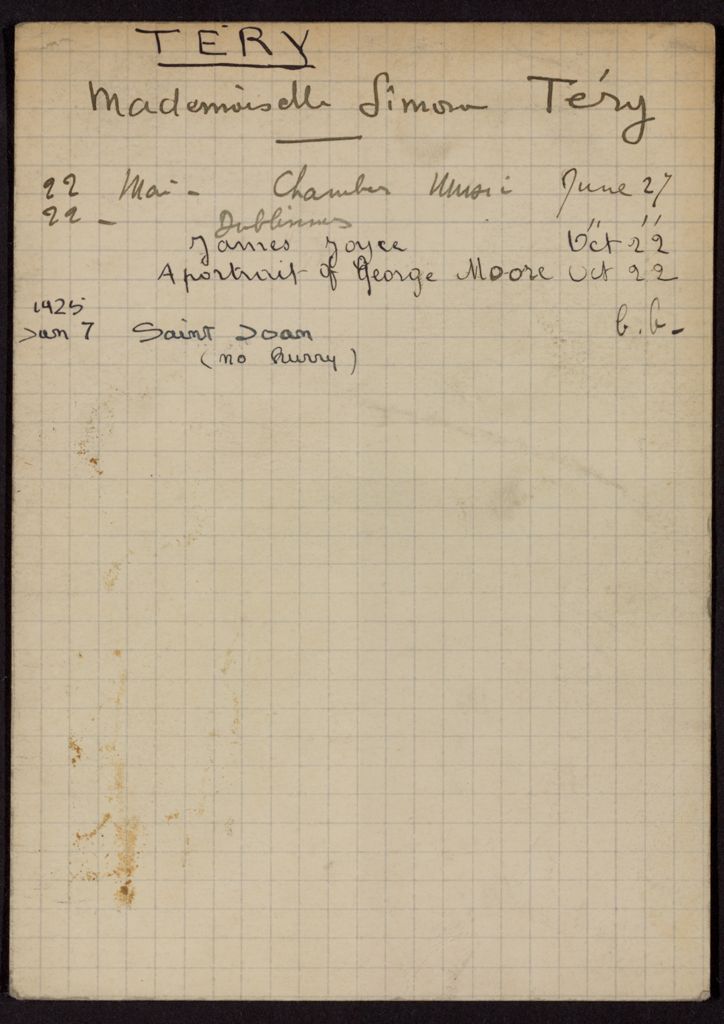 TÉRY
Mademoiselle Simone Téry
22 Mai - Chamber Music June 27
22 - Dubliners " "
James Joyce Oct 22
A portrait of George Moore Oct 22
1925
Jan 7 Saint Joan b.b.-
(no hurry)